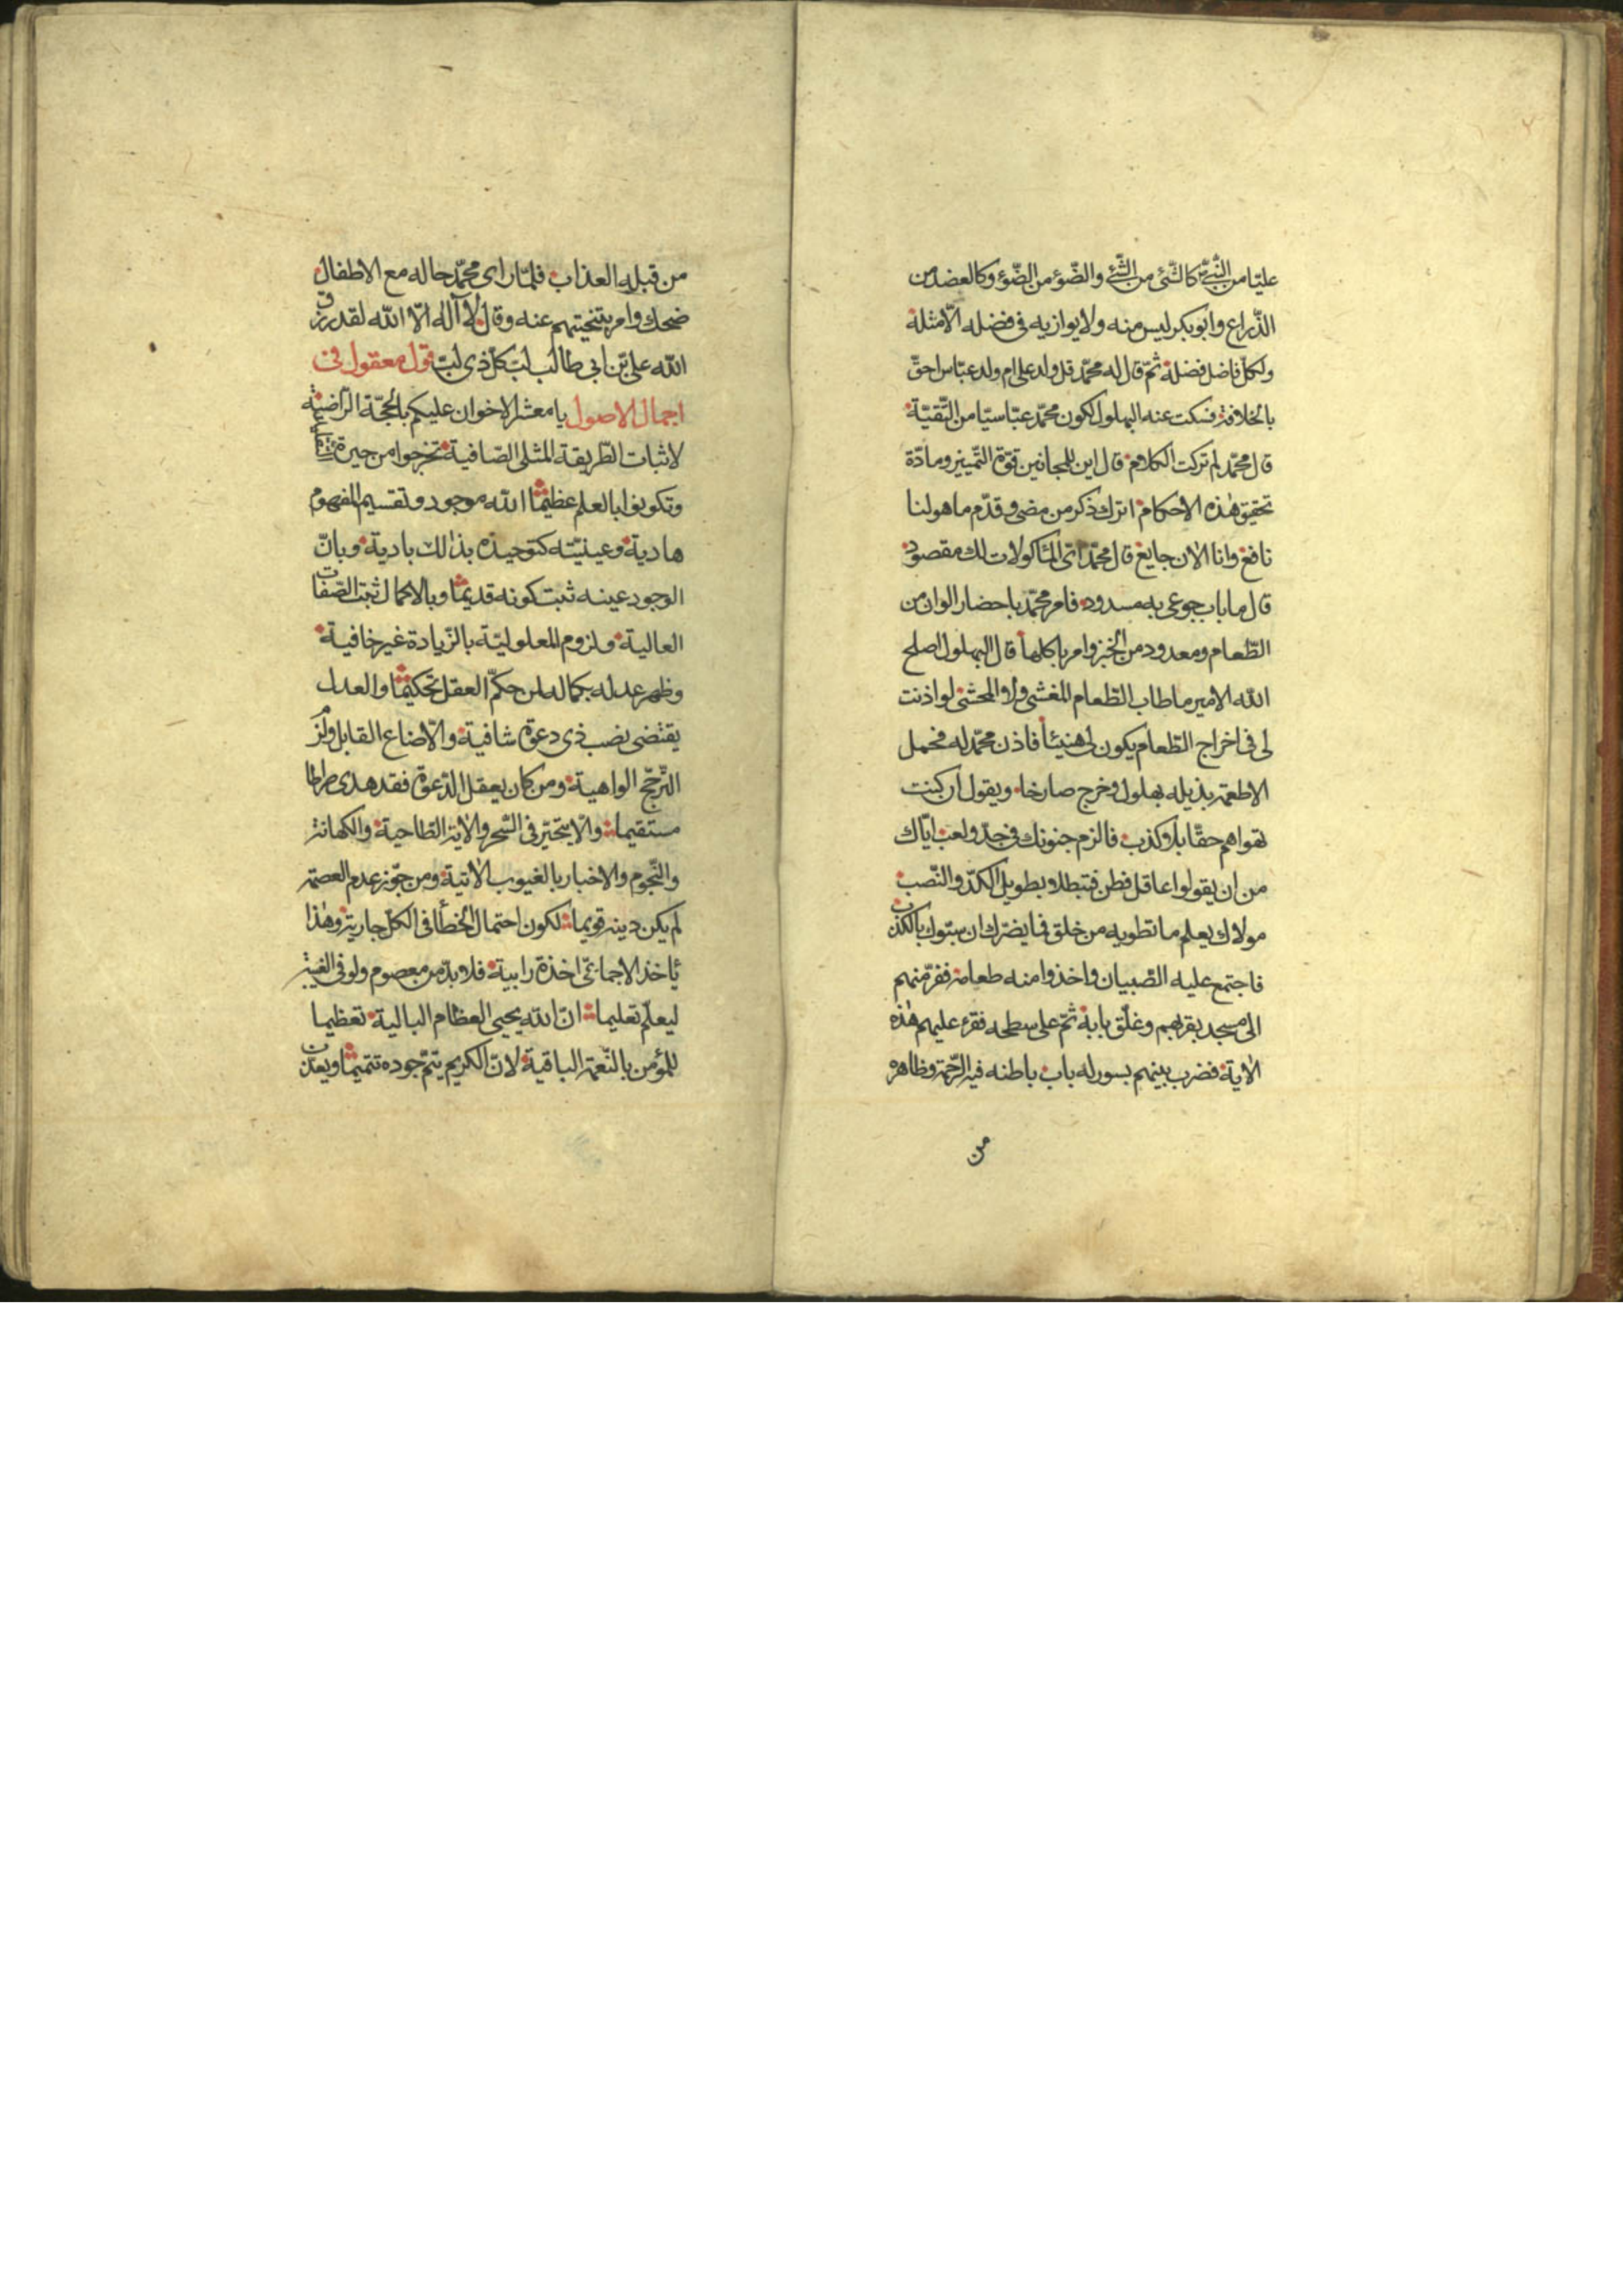 عليّا من النّبيّ كالشّئ من الشّئ والضّوء من الضّوء وكالعضد من
الذّراع وابوبكر ليس منه ولا يوازيه في فضله الامثلة
ولكلّ فاضل فضلة ثمّ قال له محمّد قل ولد على ام ولد عبّاس احقّ
بالخلافة فسكت عنه البهلول لكون محمّد عبّاسيّا من التّقيّة
قال محمّد لم تركت الكلام قال اين للمجانين قوّة التّمييز ومادّة
تحقيق هذه الاحكام اترك ذكر من مضى وقدّم ما هو لنا
نافع وانا الان جايع قال محمّد اىّ المأكولات لك مقصود
قال ما باب جوعى به مسدود فامر محمّد باحضار الوان من
الطّعام ومعدود من الخبز وامر باكلها قال البهلول اصلح
الله الامير ما طاب الطّعام المغشى ولا المحشى لو اذنت
لى فى اخراج الطّعام يكون لى هنيئا فاذن محمّد له فحمل
الاطعمة بذيله بهلول وخرج صارخا ويقول ان كنت
تهواهم حقّا بلا كذب فالزم جنونك فى جدّ ولعب ايّاك
من ان يقولوا عاقل فطن فتبطلا بطويل الكدّ والنّصب
مولاك يعلم ما تطويه من خلق فما يضرّك ان سبّوك بالكذب
فاجتمع عليه الصّبيان واخذوا منه طعامه ففرّ منهم
الى مسجد بقربهم وغلّق بابه ثمّ على سطحه فقرء عليهم هذه
الاية فضرب بينهم بسور له باب باطنه فيه الرّحمة وظاهره
من
من قبله العذاب فلمّا راى محمّد حاله مع الاطفال
ضحك وامر بتنحيتهم عنه وقال لا اله الّا الله لقد رزق
الله علىّ بن ابي طالب لبّ كلّ ذى لبّ قول معقول فى
اجمال الاصول يا معشر الاخوان عليكم بالحجّة الرّاضية
لاثبات الطّريقة المثلى الصّافية تخرجوا من حيرة
وتكونوا بالعلم عظيما الله موجود وتقسيم المفهوم
هادية وعينيّته كتوحيده بذالك بادية وبانّ
الوجود عينه ثبت كونه قديما وبالاكمال ثبت الصّفات
العالية ولزوم المعلوليّة بالزّيادة غير خافية
وظهر عدله بكماله لمن حكّم العقل تحكيما والعدل
يقتضى نصب ذى دعوة شافية والّا ضاع القابل ولزم
التّرجّح الواهية ومن كان يعقل الدّعوة فقد هدى صراطا
مستقيما والّا يتحيّر فى السّحر والاية الطّاحية والكهانة
والنّجوم والاخبار بالغيوب الاتية ومن جوّز عدم العصمة
لم يكن دينه قويما لكون احتمال الخطأ فى الكلّ جارية وهذا
يأخذ الاجماعىّ اخذة رابية فلا بدّ من معصوم ولو فى الغيبة
ليعلّم تعليما انّ الله يحيى العظام البالية تعظيما
للمؤمن بالنّعمة الباقية لانّ الكريم يتمّ جوده تتميما ويعذّب